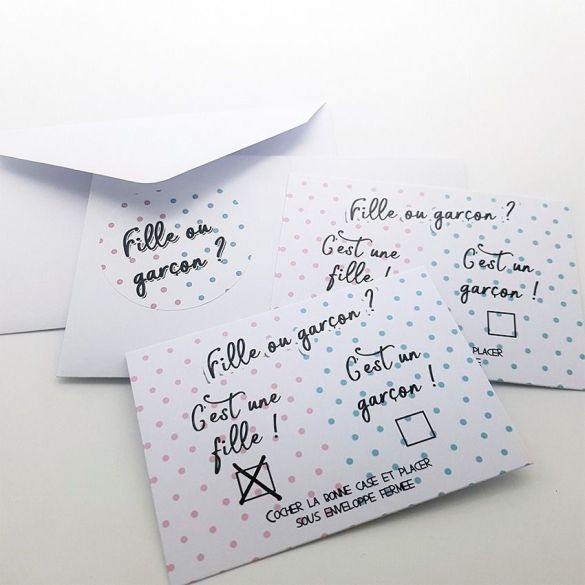 Fille ou
garçon ?
Fille ou garçon ?
C'est une
fille !
C'est un
garçon !
PLACER
Fille ou garçon ?
C'est une
fille !
C'est un
garçon !
COCHER LA BONNE CASE ET PLACER
SOUS ENVELOPPE FERMEE